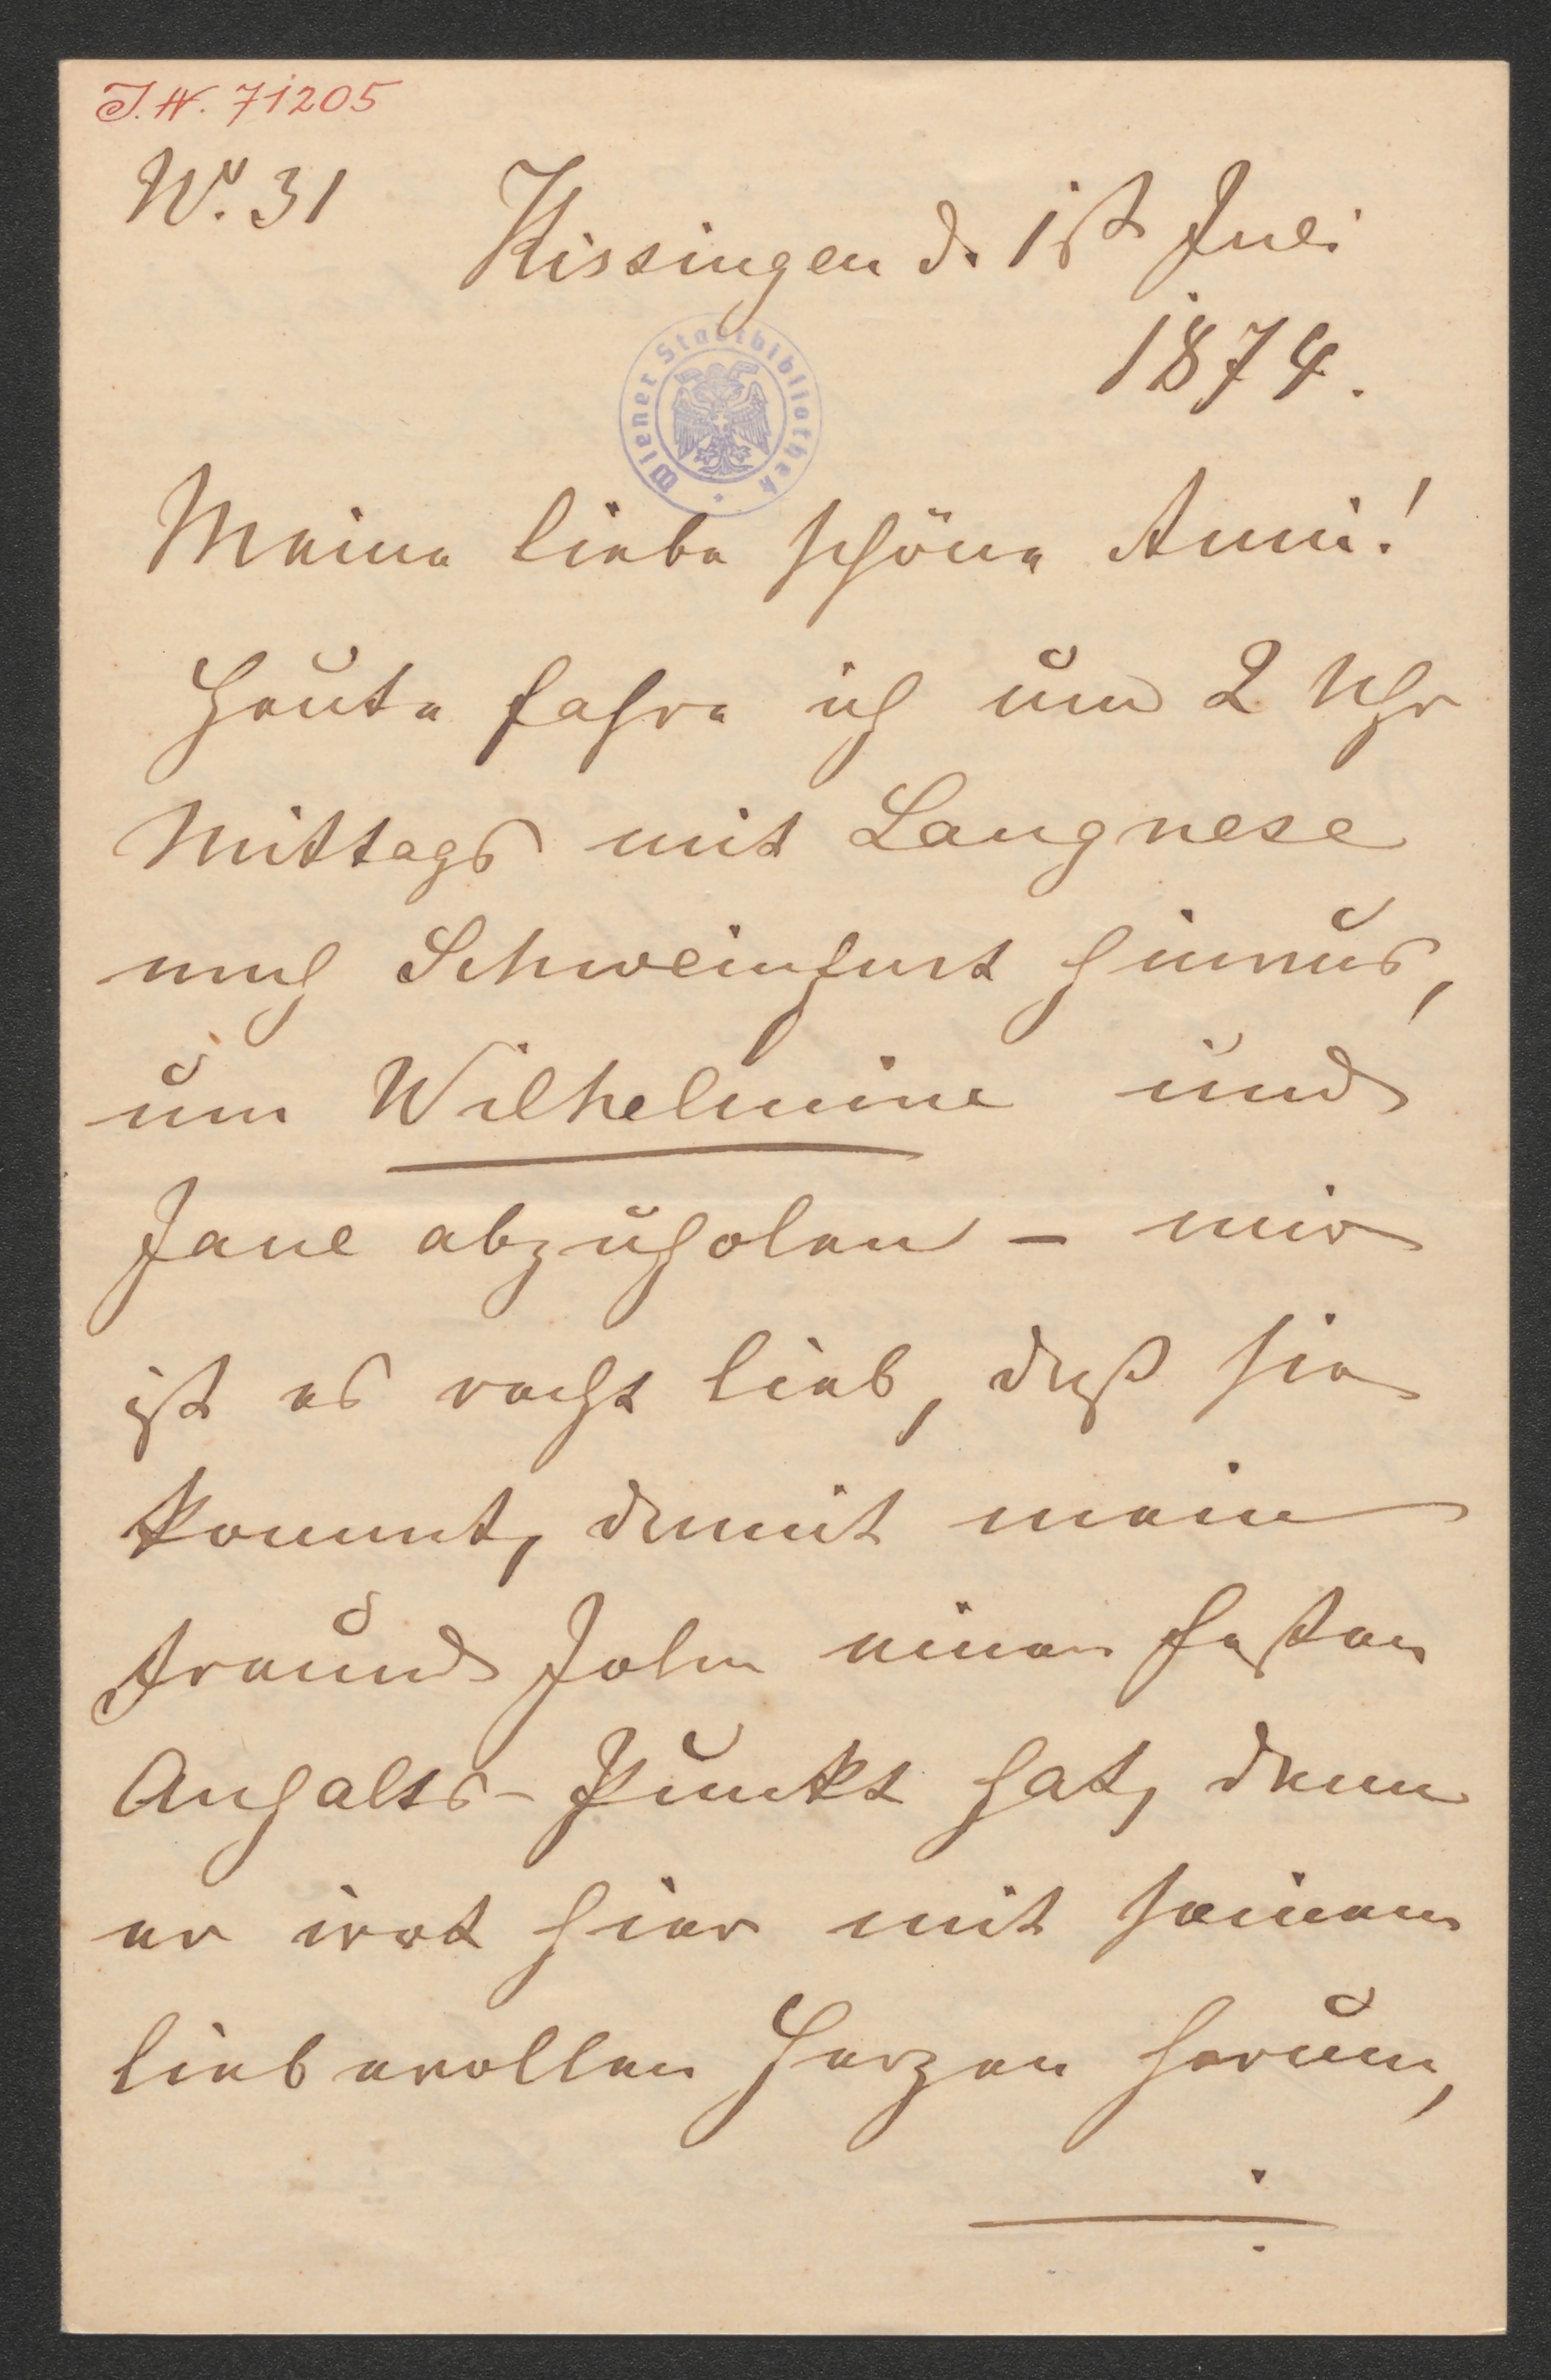 I.N. 71205
No. 31
Kissingen d. 1st Juli
1874.
Wiener Stadtbibliothek
Meine liebe schöne Anni!
Heute fahre ich um 2 Uhr
Mittags mit Langnese
nach Schweinfurt hinaus,
um Wilhelmine und
Jane abzuholen – mir
ist es recht lieb, daß sie
kommt, damit mein
Freund John einen festen
Anhalts-Punkt hat, denn
er irrt hier mit seinem
liebevollen Herzen herum,